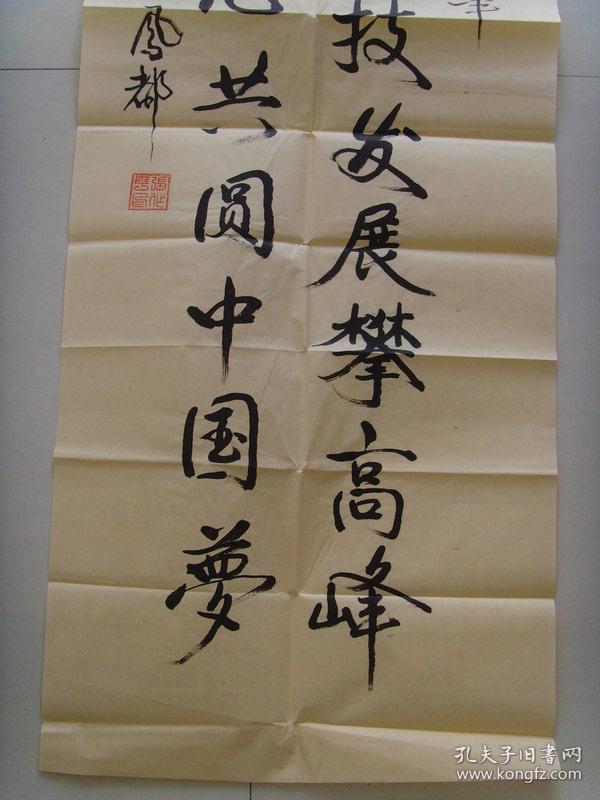 技发展攀高峰
共圆中国梦
凤都
孔夫子旧书网
www.kongfz.com